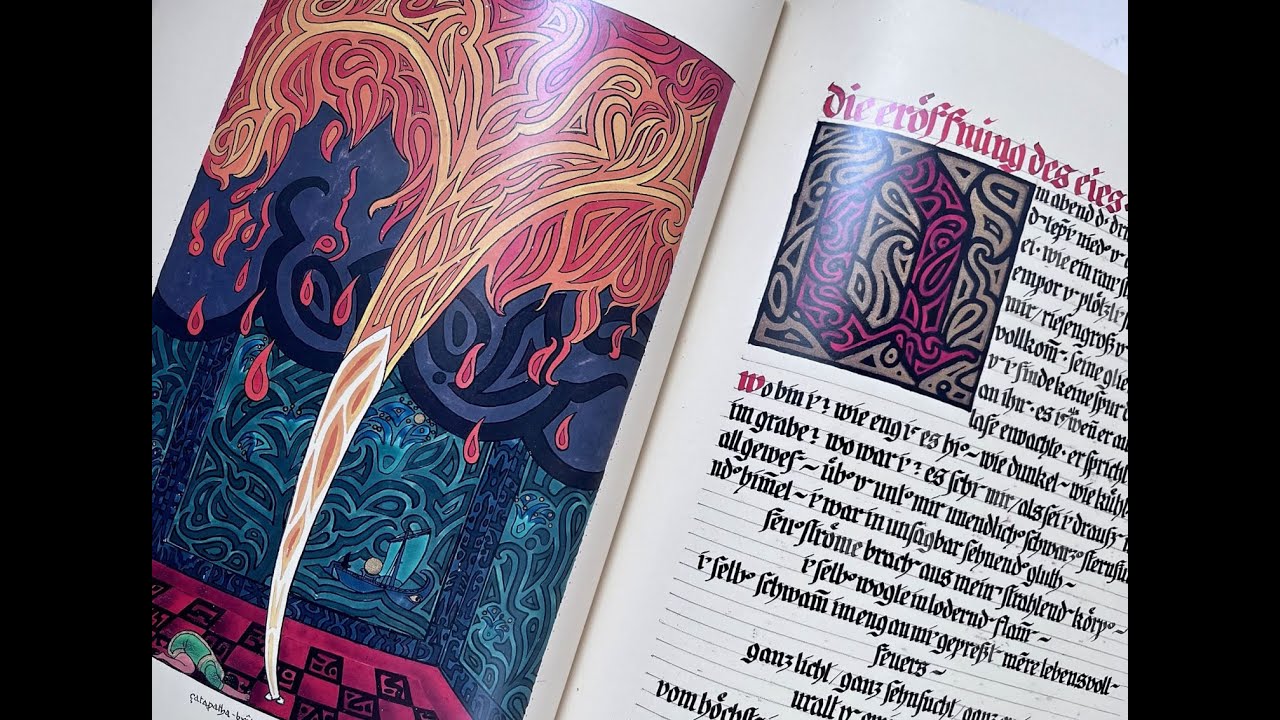 çatapatha-brâ
die eröffnung des eies.
m abend d' dri
ei · wie ein
empor v' plötzl'
mir / riesengroß v'
vollkom̄ · seine glie
v' i' finde keine spur d
an ihr · es ist als weñ er au
lase erwachte · er spricht
wo bin i'? wie eng i' es hi° – wie dunkel – wie kühl
im grabe? wo war i'? es schi' mir / als sei i' drauß
all gewes – üb° v' unt° mir unendlich° schwarz° sternfu
nd° him̄el – i' war in unsagbar sehnend° gluth –
feu° ströme brach' aus mein' strahlend' körp° –
i' selb° wogte in lodernd' flam̄ –
i' selb° schwam̄ in eng an mi' gepreßt' mēre lebensvoll–
feuers –
ganz licht / ganz sehnsucht /
uralt v'
vom höchst